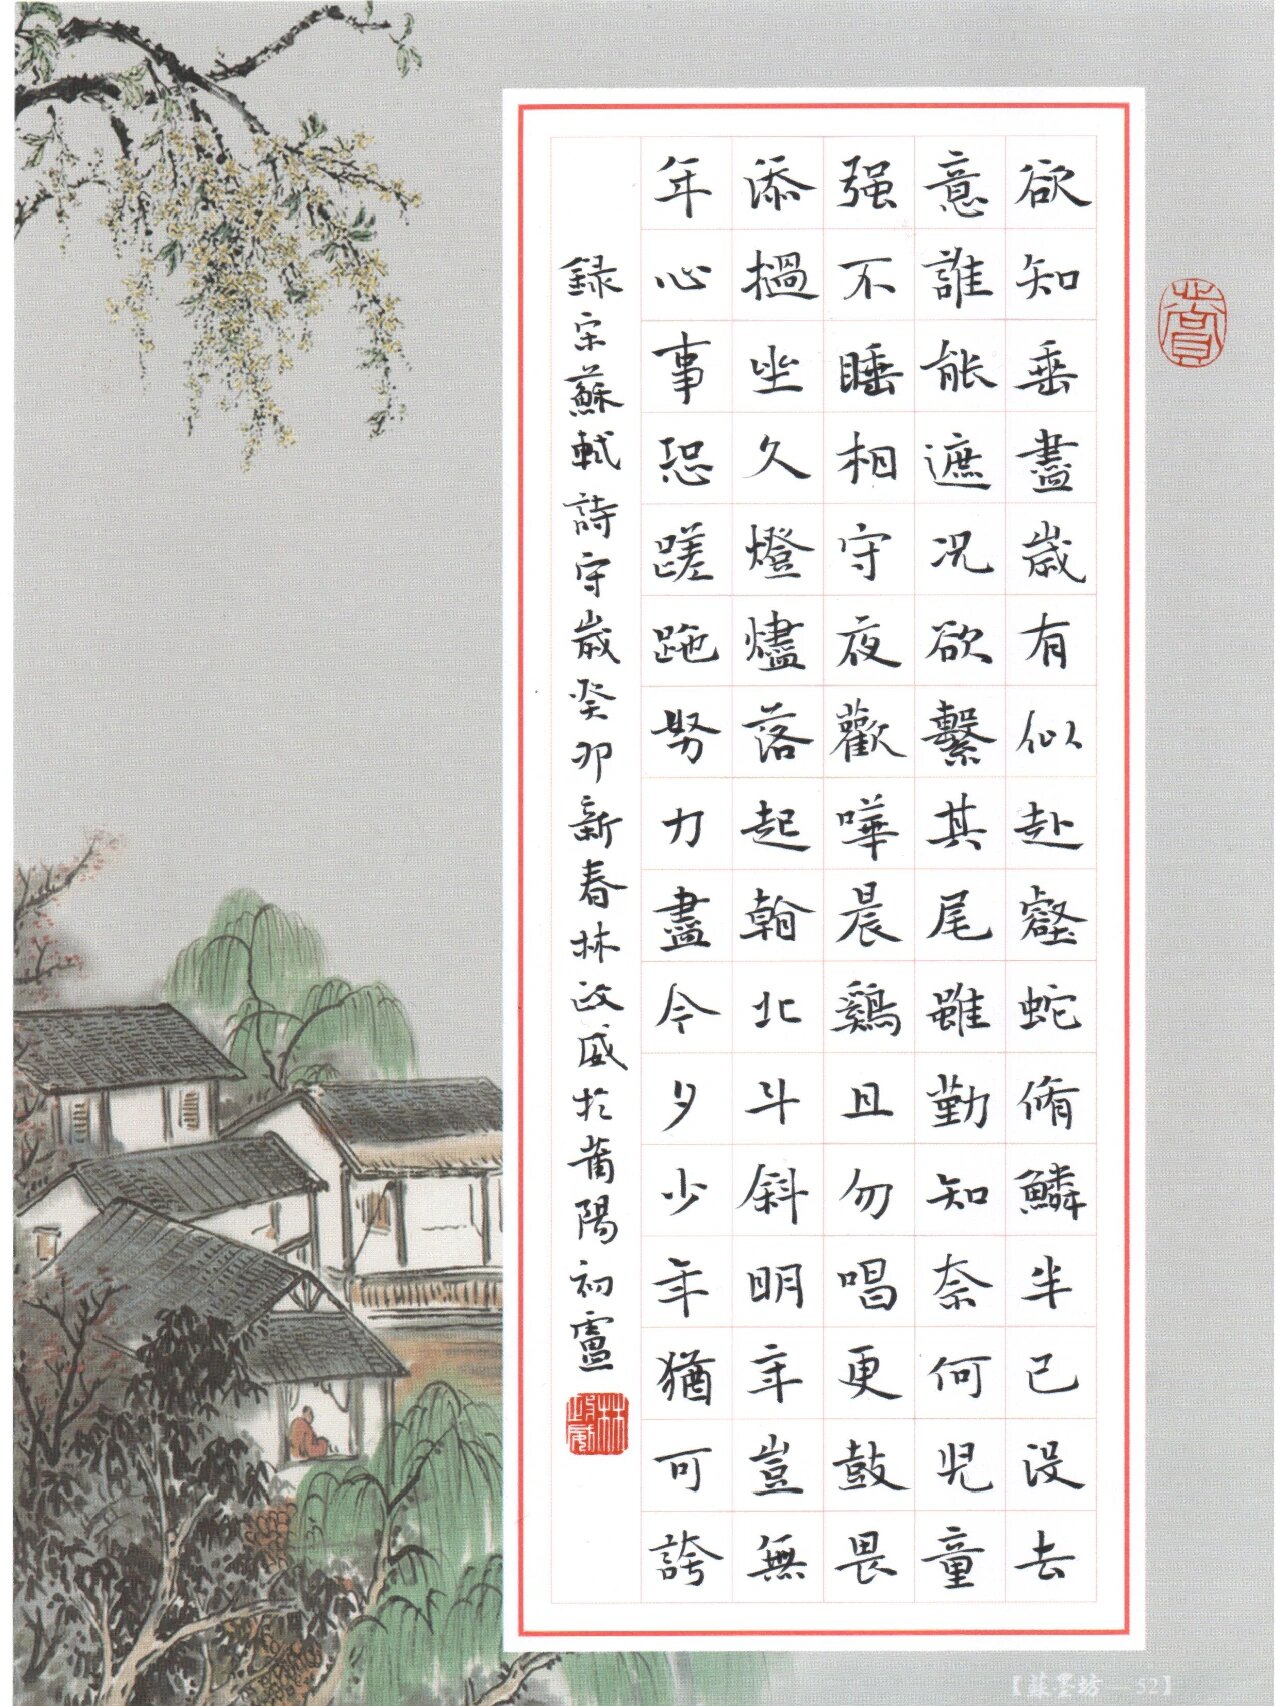 欲知垂盡歲有似赴壑蛇脩鱗半已没去
意誰能遮况欲繫其尾雖勤知奈何兒童
强不睡相守夜歡嘩晨鷄且勿唱更鼓畏
添撾坐久燈燼落起翰北斗斜明年豈無
年心事恐蹉跎努力盡今夕少年猶可誇
録宋蘇軾詩守歲癸卯新春林政威於莆陽初盧
林政威
賞
【蘇墨坊—52】